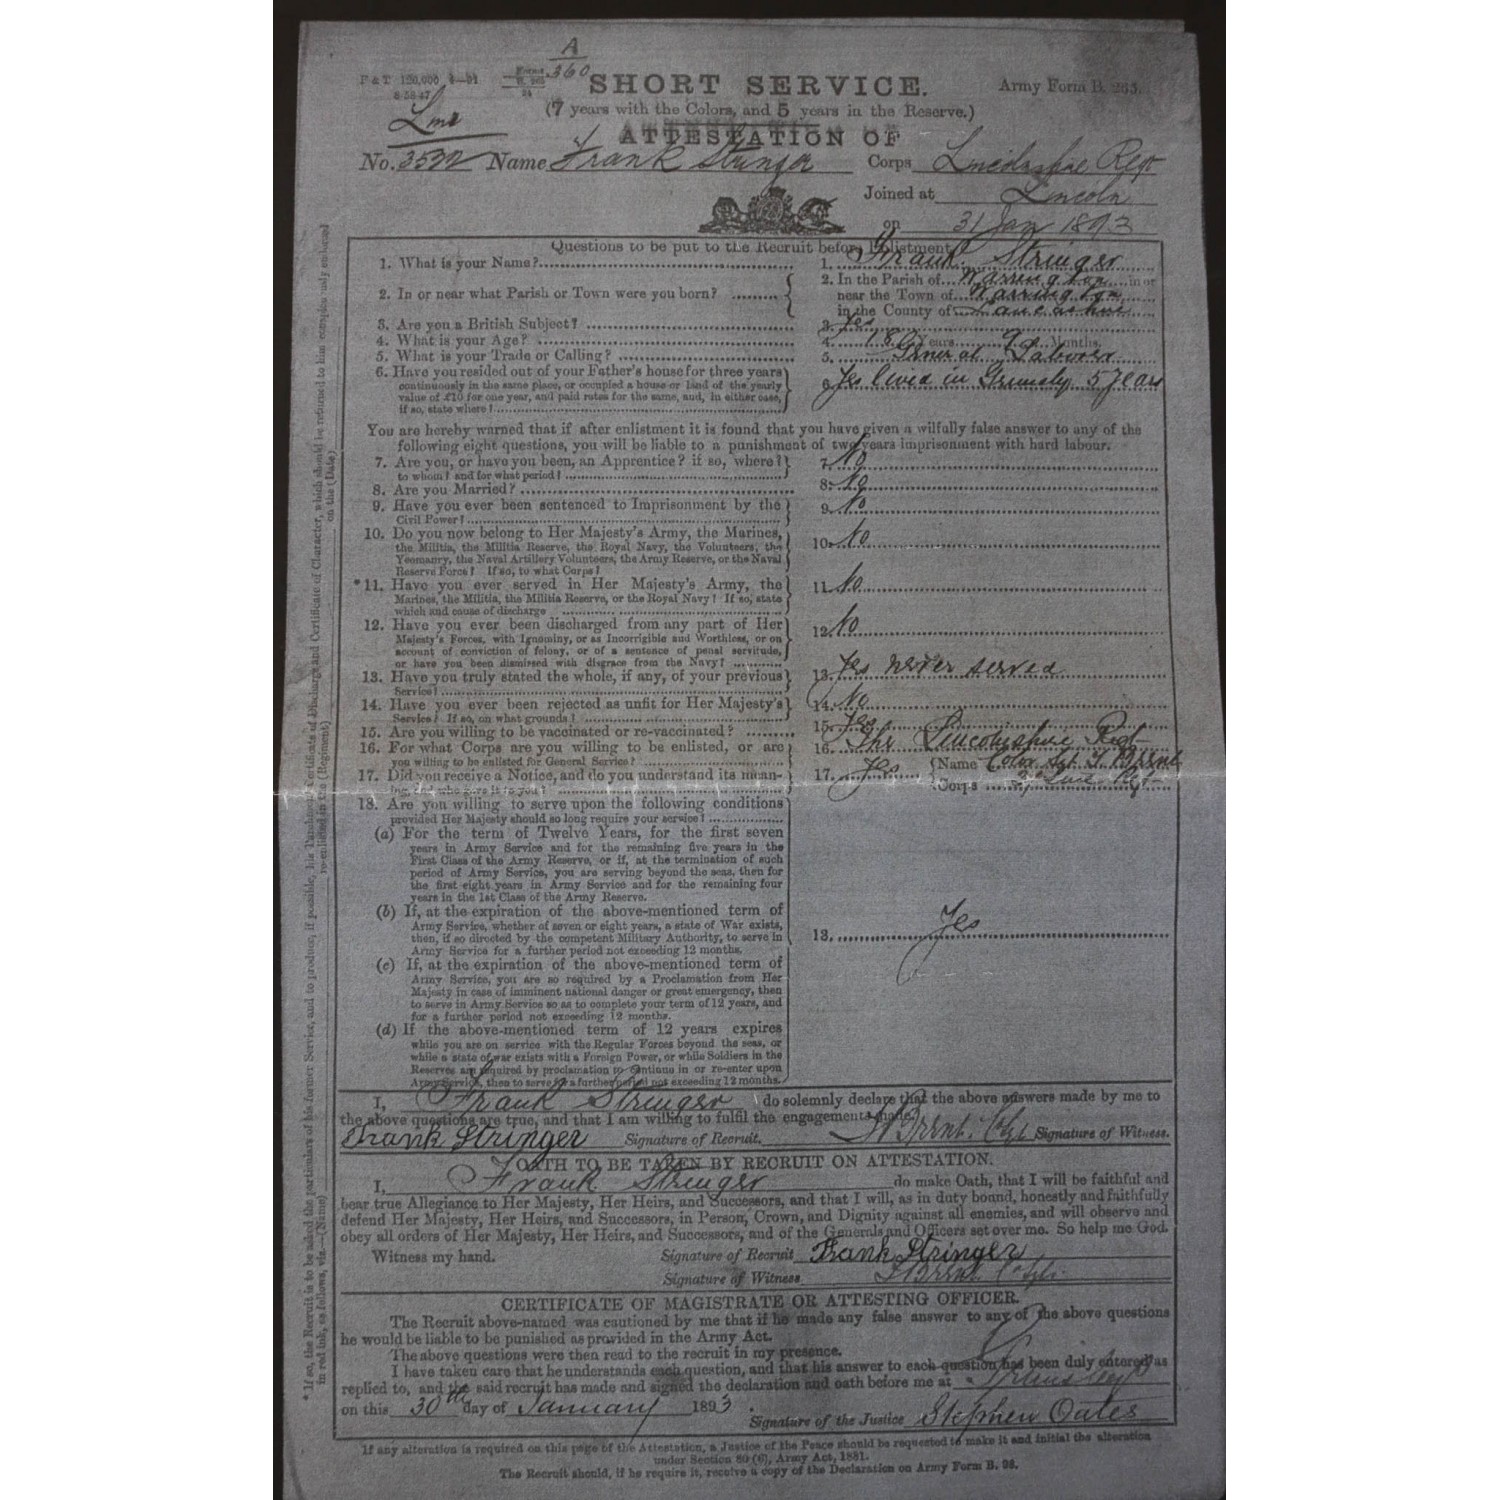 A
360
F & T 120,000
SHORT SERVICE. Army Form B. 265.
(7 years with the Colors, and 5 years in the Reserve.)
ATTESTATION OF
No. 3532 Name Frank Stringer Corps Lincolnshire Regt
Joined at Lincoln
on 31 Jan 1893
Questions to be put to the Recruit before Enlistment.
1. What is your Name? 1. Frank Stringer
2. In or near what Parish or Town were you born? 2. In the Parish of Warrington in or
near the Town of Warrington
in the County of Lancashire
3. Are you a British Subject? 3. Yes
4. What is your Age? 4. 18 Years 9 Months.
5. What is your Trade or Calling? 5. General Laborer
6. Have you resided out of your Father's house for three years 6. Yes lived in Grimsby 5 years
continuously in the same place, or occupied a house or land of the yearly
value of £10 for one year, and paid rates for the same, and, in either case,
if so, state where?
You are hereby warned that if after enlistment it is found that you have given a wilfully false answer to any of the
following eight questions, you will be liable to a punishment of two years imprisonment with hard labour.
7. Are you, or have you been, an Apprentice? if so, where? 7. No
to whom? and for what period?
8. Are you Married? 8. No
9. Have you ever been sentenced to Imprisonment by the 9. No
Civil Power?
10. Do you now belong to Her Majesty's Army, the Marines, 10. No
the Militia, the Militia Reserve, the Royal Navy, the Volunteers, the
Yeomanry, the Naval Artillery Volunteers, the Army Reserve, or the Naval
Reserve Force? If so, to what Corps?
*11. Have you ever served in Her Majesty's Army, the 11. No
Marines, the Militia, the Militia Reserve, or the Royal Navy? If so, state
which and cause of discharge
12. Have you ever been discharged from any part of Her 12. No
Majesty's Forces, with Ignominy, or as Incorrigible and Worthless, or on
account of conviction of felony, or of a sentence of penal servitude,
or have you been dismissed with disgrace from the Navy?
13. Have you truly stated the whole, if any, of your previous 13. Yes never served
Service?
14. Have you ever been rejected as unfit for Her Majesty's 14. No
Service? If so, on what grounds?
15. Are you willing to be vaccinated or re-vaccinated? 15. Yes
16. For what Corps are you willing to be enlisted, or are 16. The Lincolnshire Regt
you willing to be enlisted for General Service?
17. Did you receive a Notice, and do you understand its mean- 17. Yes Name
ing, and who gave it to you? Corps
18. Are you willing to serve upon the following conditions
provided Her Majesty should so long require your service?
(a) For the term of Twelve Years, for the first seven
years in Army Service and for the remaining five years in the
First Class of the Army Reserve, or if, at the termination of such
period of Army Service, you are serving beyond the seas, then for
the first eight years in Army Service and for the remaining four
years in the 1st Class of the Army Reserve.
(b) If, at the expiration of the above-mentioned term of
Army Service, whether of seven or eight years, a state of War exists,
then, if so directed by the competent Military Authority, to serve in
Army Service for a further period not exceeding 12 months.
18. Yes
(c) If, at the expiration of the above-mentioned term of
Army Service, you are so required by a Proclamation from Her
Majesty in case of imminent national danger or great emergency, then
to serve in Army Service so as to complete your term of 12 years, and
for a further period not exceeding 12 months.
(d) If the above-mentioned term of 12 years expires
while you are on service with the Regular Forces beyond the seas, or
while a state of war exists with a Foreign Power, or while Soldiers in the
Reserves are required by proclamation to continue in or re-enter upon
Army Service, then to serve for a further period not exceeding 12 months.
I, Frank Stringer do solemnly declare that the above answers made by me to
the above questions are true, and that I am willing to fulfil the engagements made.
Frank Stringer Signature of Recruit. Signature of Witness.
OATH TO BE TAKEN BY RECRUIT ON ATTESTATION.
I, Frank Stringer do make Oath, that I will be faithful and
bear true Allegiance to Her Majesty, Her Heirs, and Successors, and that I will, as in duty bound, honestly and faithfully
defend Her Majesty, Her Heirs, and Successors, in Person, Crown, and Dignity against all enemies, and will observe and
obey all orders of Her Majesty, Her Heirs, and Successors, and of the Generals and Officers set over me. So help me God.
Witness my hand. Signature of Recruit Frank Stringer
Signature of Witness
CERTIFICATE OF MAGISTRATE OR ATTESTING OFFICER.
The Recruit above-named was cautioned by me that if he made any false answer to any of the above questions
he would be liable to be punished as provided in the Army Act.
The above questions were then read to the recruit in my presence.
I have taken care that he understands each question, and that his answer to each question has been duly entered as
replied to, and the said recruit has made and signed the declaration and oath before me at
on this 30th day of January 1893.
Signature of the Justice Stephen Oates
If any alteration is required on this page of the Attestation, a Justice of the Peace should be requested to make it and initial the alteration
under Section 80 (6), Army Act, 1881.
The Recruit should, if he require it, receive a copy of the Declaration on Army Form B. 96.
* If so, the Recruit is to be asked the particulars of his former Service, and to produce, if possible, his Parchment Certificate of Discharge and Certificate of Character, which should be returned to him conspicuously endorsed
in red ink, as follows, viz.—(Name) re-enlisted in the (Regiment) on the (Date)